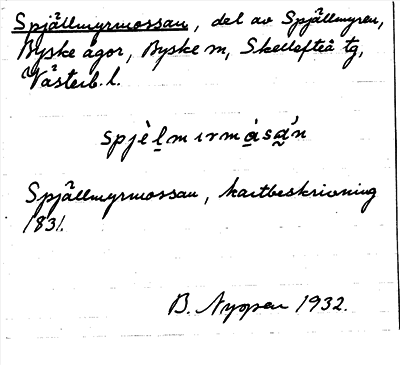 Spjällmyrmossan, del av Spjällmyren,
Byske ägor, Byske sn, Skellefteå tg,
Västerb. l.
spjèl̲mırmɑ̲̀sa̰̍n
Spjällmyrmossan, kartbeskrivning
1831.
B. Nyman 1932.